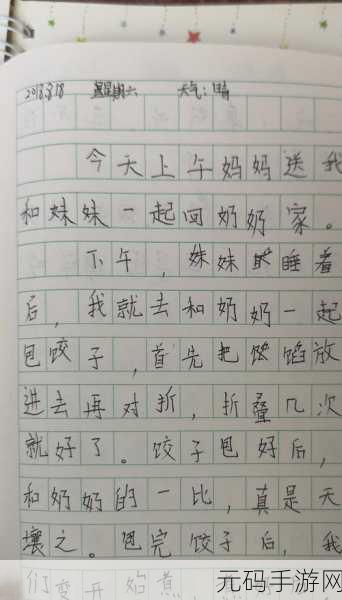 2018.8.18 星期六 天气:晴
今天上午妈妈送我
和妹妹一起回奶奶家。
下午,妹妹睡着
后,我就去和奶奶一起
包饺子,首先把馅放
进去再对折,折叠几次
就好了。饺子包好后,
和奶奶的一比,真是天
壤之。包完饺子后,我
们变开始煮,
元码手游网